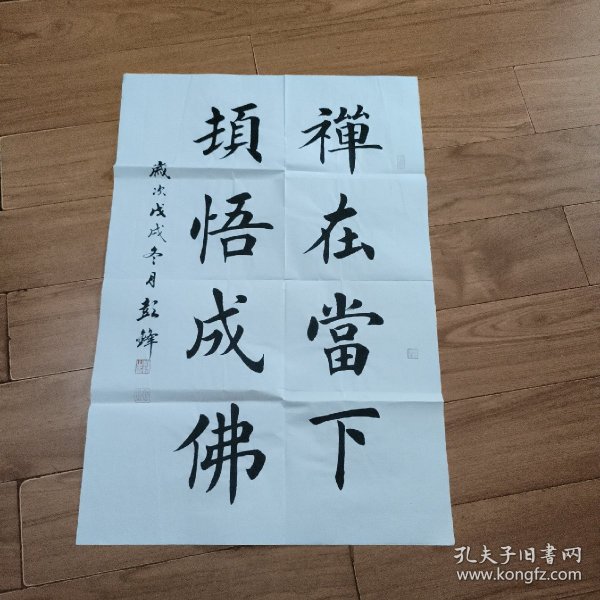 禪在當下
頓悟成佛
歲次戊戌冬月彭鋒
孔夫子旧書网
www.kongfz.com